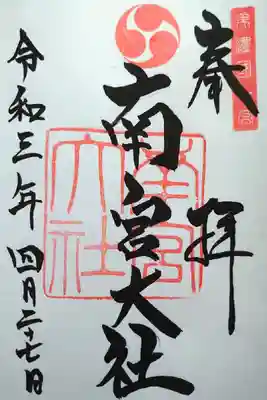 美濃国一宮
奉拝
南宮大社
南宮大社
令和三年四月二十七日